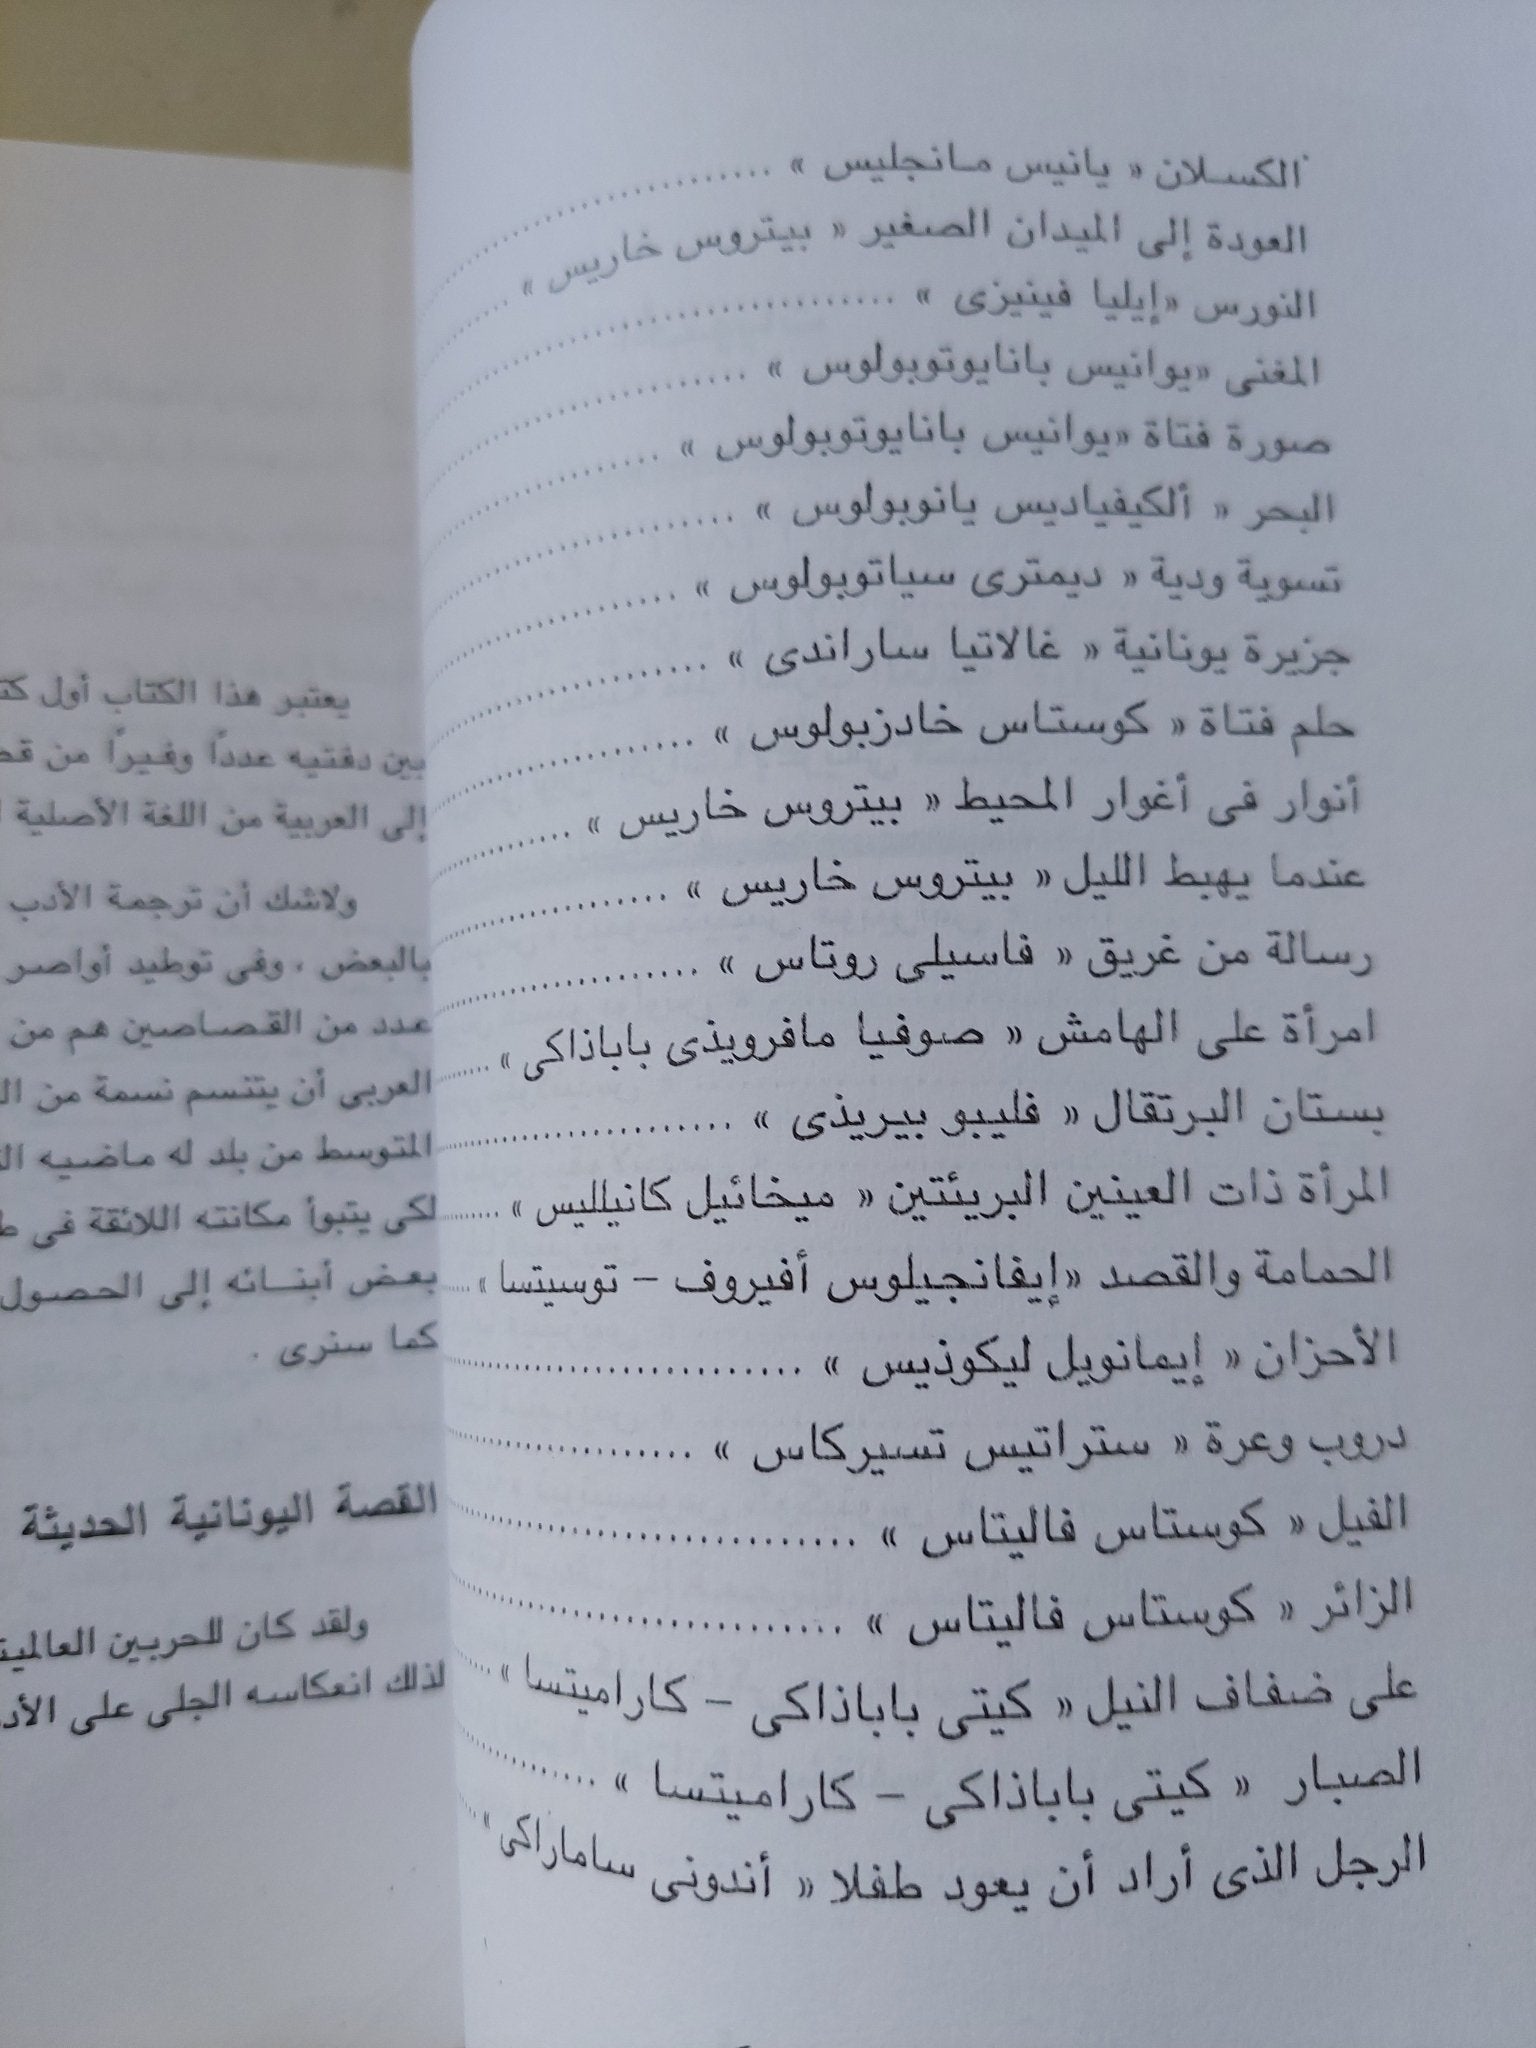 الكسلان « يانيس مانجليس » ..............
العودة إلى الميدان الصغير « بيتروس خاريس » ..............
النورس «إيليا فينيزى » ..............
المغنى «يوانيس بانايوتوبولوس » ..............
صورة فتاة «يوانيس بانايوتوبولوس » ..............
البحر « ألكيفياديس يانوبولوس » ..............
تسوية ودية « ديمترى سياتوبولوس » ..............
جزيرة يونانية « غالاتيا ساراندى » ..............
حلم فتاة « كوستاس خادزبولوس » ..............
أنوار فى أغوار المحيط « بيتروس خاريس » ..............
عندما يهبط الليل « بيتروس خاريس » ..............
رسالة من غريق « فاسيلى روتاس » ..............
امرأة على الهامش « صوفيا مافرويذى باباذاكى » ........
بستان البرتقال « فليبو بيريذى » ..............
المرأة ذات العينين البريئتين « ميخائيل كانيلليس » ........
الحمامة والقصد «إيفانجيلوس أفيروف – توسيتسا » ......
الأحزان « إيمانويل ليكوذيس » ..............
دروب وعرة « ستراتيس تسيركاس » ..............
الفيل « كوستاس فاليتاس » ..............
الزائر « كوستاس فاليتاس » ..............
على ضفاف النيل « كيتى باباذاكى – كاراميتسا » ......
الصبار « كيتى باباذاكى – كاراميتسا » ..............
الرجل الذى أراد أن يعود طفلا « أندونى ساماراكى » ....
يعتبر هذا الكتاب أول
بين دفتيه عددًا وفيرًا من
إلى العربية من اللغة الأصلية
ولاشك أن ترجمة الأدب
بالبعض ، وفى توطيد أواصر
عدد من القصاصين هم من
العربى أن يتنسم نسمة من
المتوسط من بلد له ماضيه
لكى يتبوأ مكانته اللائقة فى
بعض أبنائه إلى الحصول
كما سنرى .
القصة اليونانية الحديثة
ولقد كان للحربين
لذلك انعكاسه الجلى على